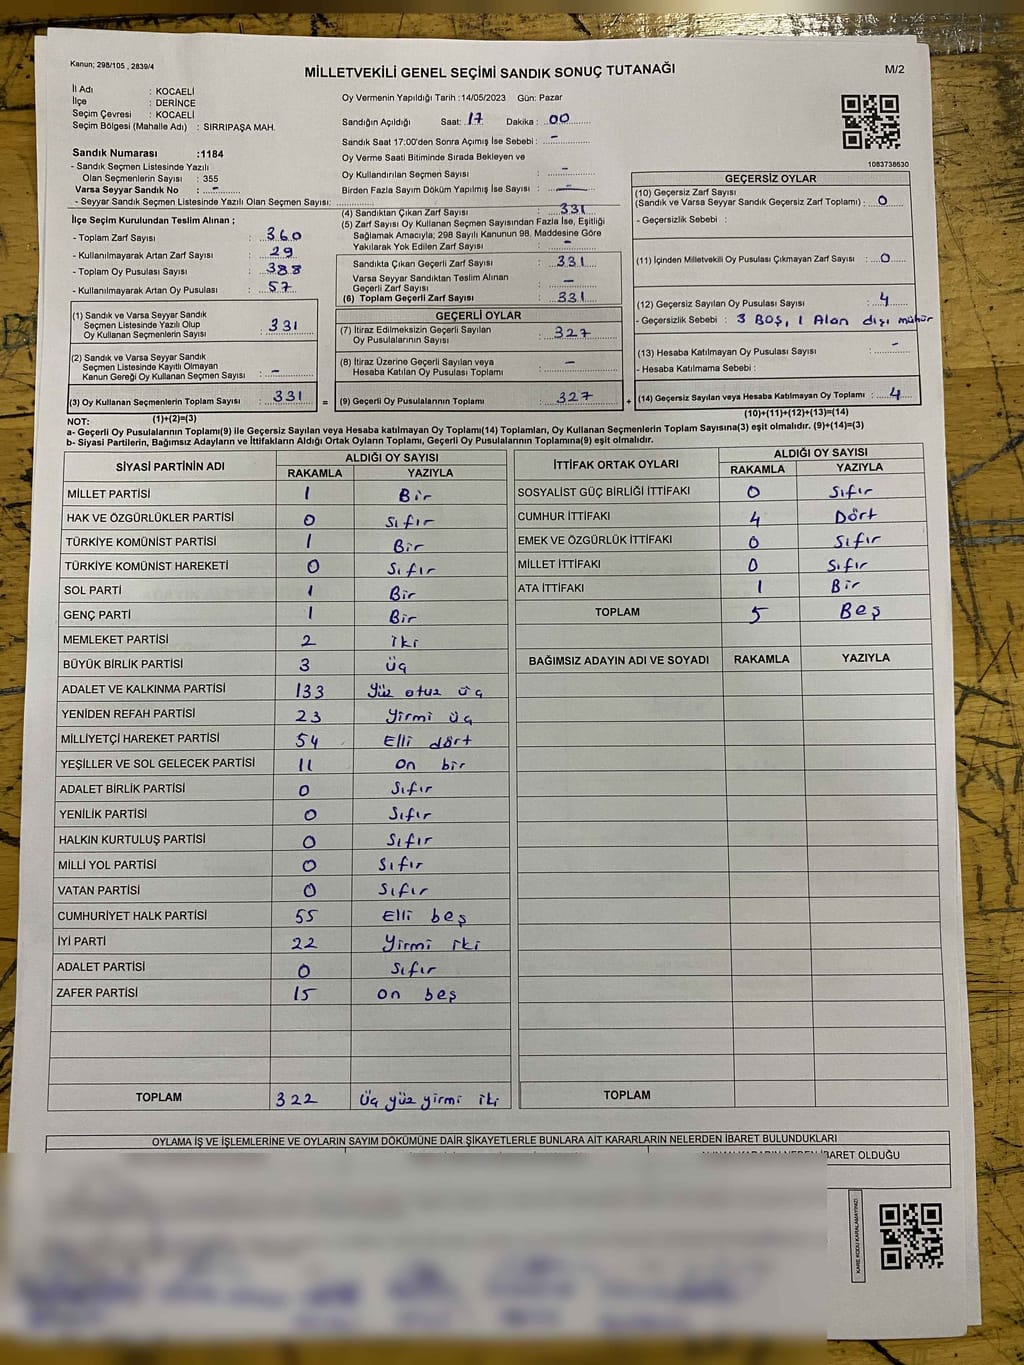 Kanun; 298/105 , 2839/4
MİLLETVEKİLİ GENEL SEÇİMİ SANDIK SONUÇ TUTANAĞI
M/2
İl Adı : KOCAELİ
İlçe : DERİNCE
Seçim Çevresi : KOCAELİ
Seçim Bölgesi (Mahalle Adı) : SIRRIPAŞA MAH.
Oy Vermenin Yapıldığı Tarih :14/05/2023 Gün: Pazar
Sandığın Açıldığı Saat: 17 Dakika : 00
Sandık Saat 17:00'den Sonra Açımış İse Sebebi : -
Oy Verme Saati Bitiminde Sırada Bekleyen ve
Oy Kullandırılan Seçmen Sayısı : -
Birden Fazla Sayım Döküm Yapılmış İse Sayısı : -
1083738630
Sandık Numarası :1184
- Sandık Seçmen Listesinde Yazılı
Olan Seçmenlerin Sayısı : 355
Varsa Seyyar Sandık No : -
- Seyyar Sandık Seçmen Listesinde Yazılı Olan Seçmen Sayısı:
İlçe Seçim Kurulundan Teslim Alınan ;
- Toplam Zarf Sayısı : 360
- Kullanılmayarak Artan Zarf Sayısı : 29
- Toplam Oy Pusulası Sayısı : 388
- Kullanılmayarak Artan Oy Pusulası : 57
(1) Sandık ve Varsa Seyyar Sandık
Seçmen Listesinde Yazılı Olup
Oy Kullanan Seçmenlerin Sayısı : 331
(2) Sandık ve Varsa Seyyar Sandık
Seçmen Listesinde Kayıtlı Olmayan
Kanun Gereği Oy Kullanan Seçmen Sayısı : -
(3) Oy Kullanan Seçmenlerin Toplam Sayısı : 331 =
(4) Sandıktan Çıkan Zarf Sayısı : 331
(5) Zarf Sayısı Oy Kullanan Seçmen Sayısından Fazla İse, Eşitliği
Sağlamak Amacıyla; 298 Sayılı Kanunun 98. Maddesine Göre
Yakılarak Yok Edilen Zarf Sayısı : -
Sandıkta Çıkan Geçerli Zarf Sayısı : 331
Varsa Seyyar Sandıktan Teslim Alınan
Geçerli Zarf Sayısı : -
(6) Toplam Geçerli Zarf Sayısı : 331
GEÇERLİ OYLAR
(7) İtiraz Edilmeksizin Geçerli Sayılan
Oy Pusulalarının Sayısı : 327
(8) İtiraz Üzerine Geçerli Sayılan veya
Hesaba Katılan Oy Pusulası Toplamı : -
(9) Geçerli Oy Pusulalarının Toplamı : 327 +
GEÇERSİZ OYLAR
(10) Geçersiz Zarf Sayısı
(Sandık ve Varsa Seyyar Sandık Geçersiz Zarf Toplamı) : 0
- Geçersizlik Sebebi :
(11) İçinden Milletvekili Oy Pusulası Çıkmayan Zarf Sayısı : 0
(12) Geçersiz Sayılan Oy Pusulası Sayısı : 4
- Geçersizlik Sebebi : 3 BOŞ, 1 Alan dışı mühür
(13) Hesaba Katılmayan Oy Pusulası Sayısı : -
- Hesaba Katılmama Sebebi :
(14) Geçersiz Sayılan veya Hesaba Katılmayan Oy Toplamı : 4
NOT: (1)+(2)=(3)
(10)+(11)+(12)+(13)=(14)
a- Geçerli Oy Pusulalarının Toplamı(9) ile Geçersiz Sayılan veya Hesaba Katılmayan Oy Toplamı(14) Toplamları, Oy Kullanan Seçmenlerin Toplam Sayısına(3) eşit olmalıdır. (9)+(14)=(3)
b- Siyasi Partilerin, Bağımsız Adayların ve İttifakların Aldığı Ortak Oyların Toplamı, Geçerli Oy Pusulalarının Toplamına(9) eşit olmalıdır.
SİYASİ PARTİNİN ADI ALDIĞI OY SAYISI
RAKAMLA YAZIYLA
MİLLET PARTİSİ 1 Bir
HAK VE ÖZGÜRLÜKLER PARTİSİ 0 Sıfır
TÜRKİYE KOMÜNİST PARTİSİ 1 Bir
TÜRKİYE KOMÜNİST HAREKETİ 0 Sıfır
SOL PARTİ 1 Bir
GENÇ PARTİ 1 Bir
MEMLEKET PARTİSİ 2 iki
BÜYÜK BİRLİK PARTİSİ 3 üç
ADALET VE KALKINMA PARTİSİ 133 Yüz otuz üç
YENİDEN REFAH PARTİSİ 23 Yirmi üç
MİLLİYETÇİ HAREKET PARTİSİ 54 Elli dört
YEŞİLLER VE SOL GELECEK PARTİSİ 11 On bir
ADALET BİRLİK PARTİSİ 0 Sıfır
YENİLİK PARTİSİ 0 Sıfır
HALKIN KURTULUŞ PARTİSİ 0 Sıfır
MİLLİ YOL PARTİSİ 0 Sıfır
VATAN PARTİSİ 0 Sıfır
CUMHURİYET HALK PARTİSİ 55 Elli beş
İYİ PARTİ 22 Yirmi iki
ADALET PARTİSİ 0 Sıfır
ZAFER PARTİSİ 15 On beş
TOPLAM 322 Üç yüz yirmi iki
İTTİFAK ORTAK OYLARI ALDIĞI OY SAYISI
RAKAMLA YAZIYLA
SOSYALİST GÜÇ BİRLİĞİ İTTİFAKI 0 Sıfır
CUMHUR İTTİFAKI 4 Dört
EMEK VE ÖZGÜRLÜK İTTİFAKI 0 Sıfır
MİLLET İTTİFAKI 0 Sıfır
ATA İTTİFAKI 1 Bir
TOPLAM 5 Beş
BAĞIMSIZ ADAYIN ADI VE SOYADI RAKAMLA YAZIYLA
TOPLAM
OYLAMA İŞ VE İŞLEMLERİNE VE OYLARIN SAYIM DÖKÜMÜNE DAİR ŞİKAYETLERLE BUNLARA AİT KARARLARIN NELERDEN İBARET BULUNDUKLARI
İBARET OLDUĞU
KARE KODU KARALAMAYINIZ!